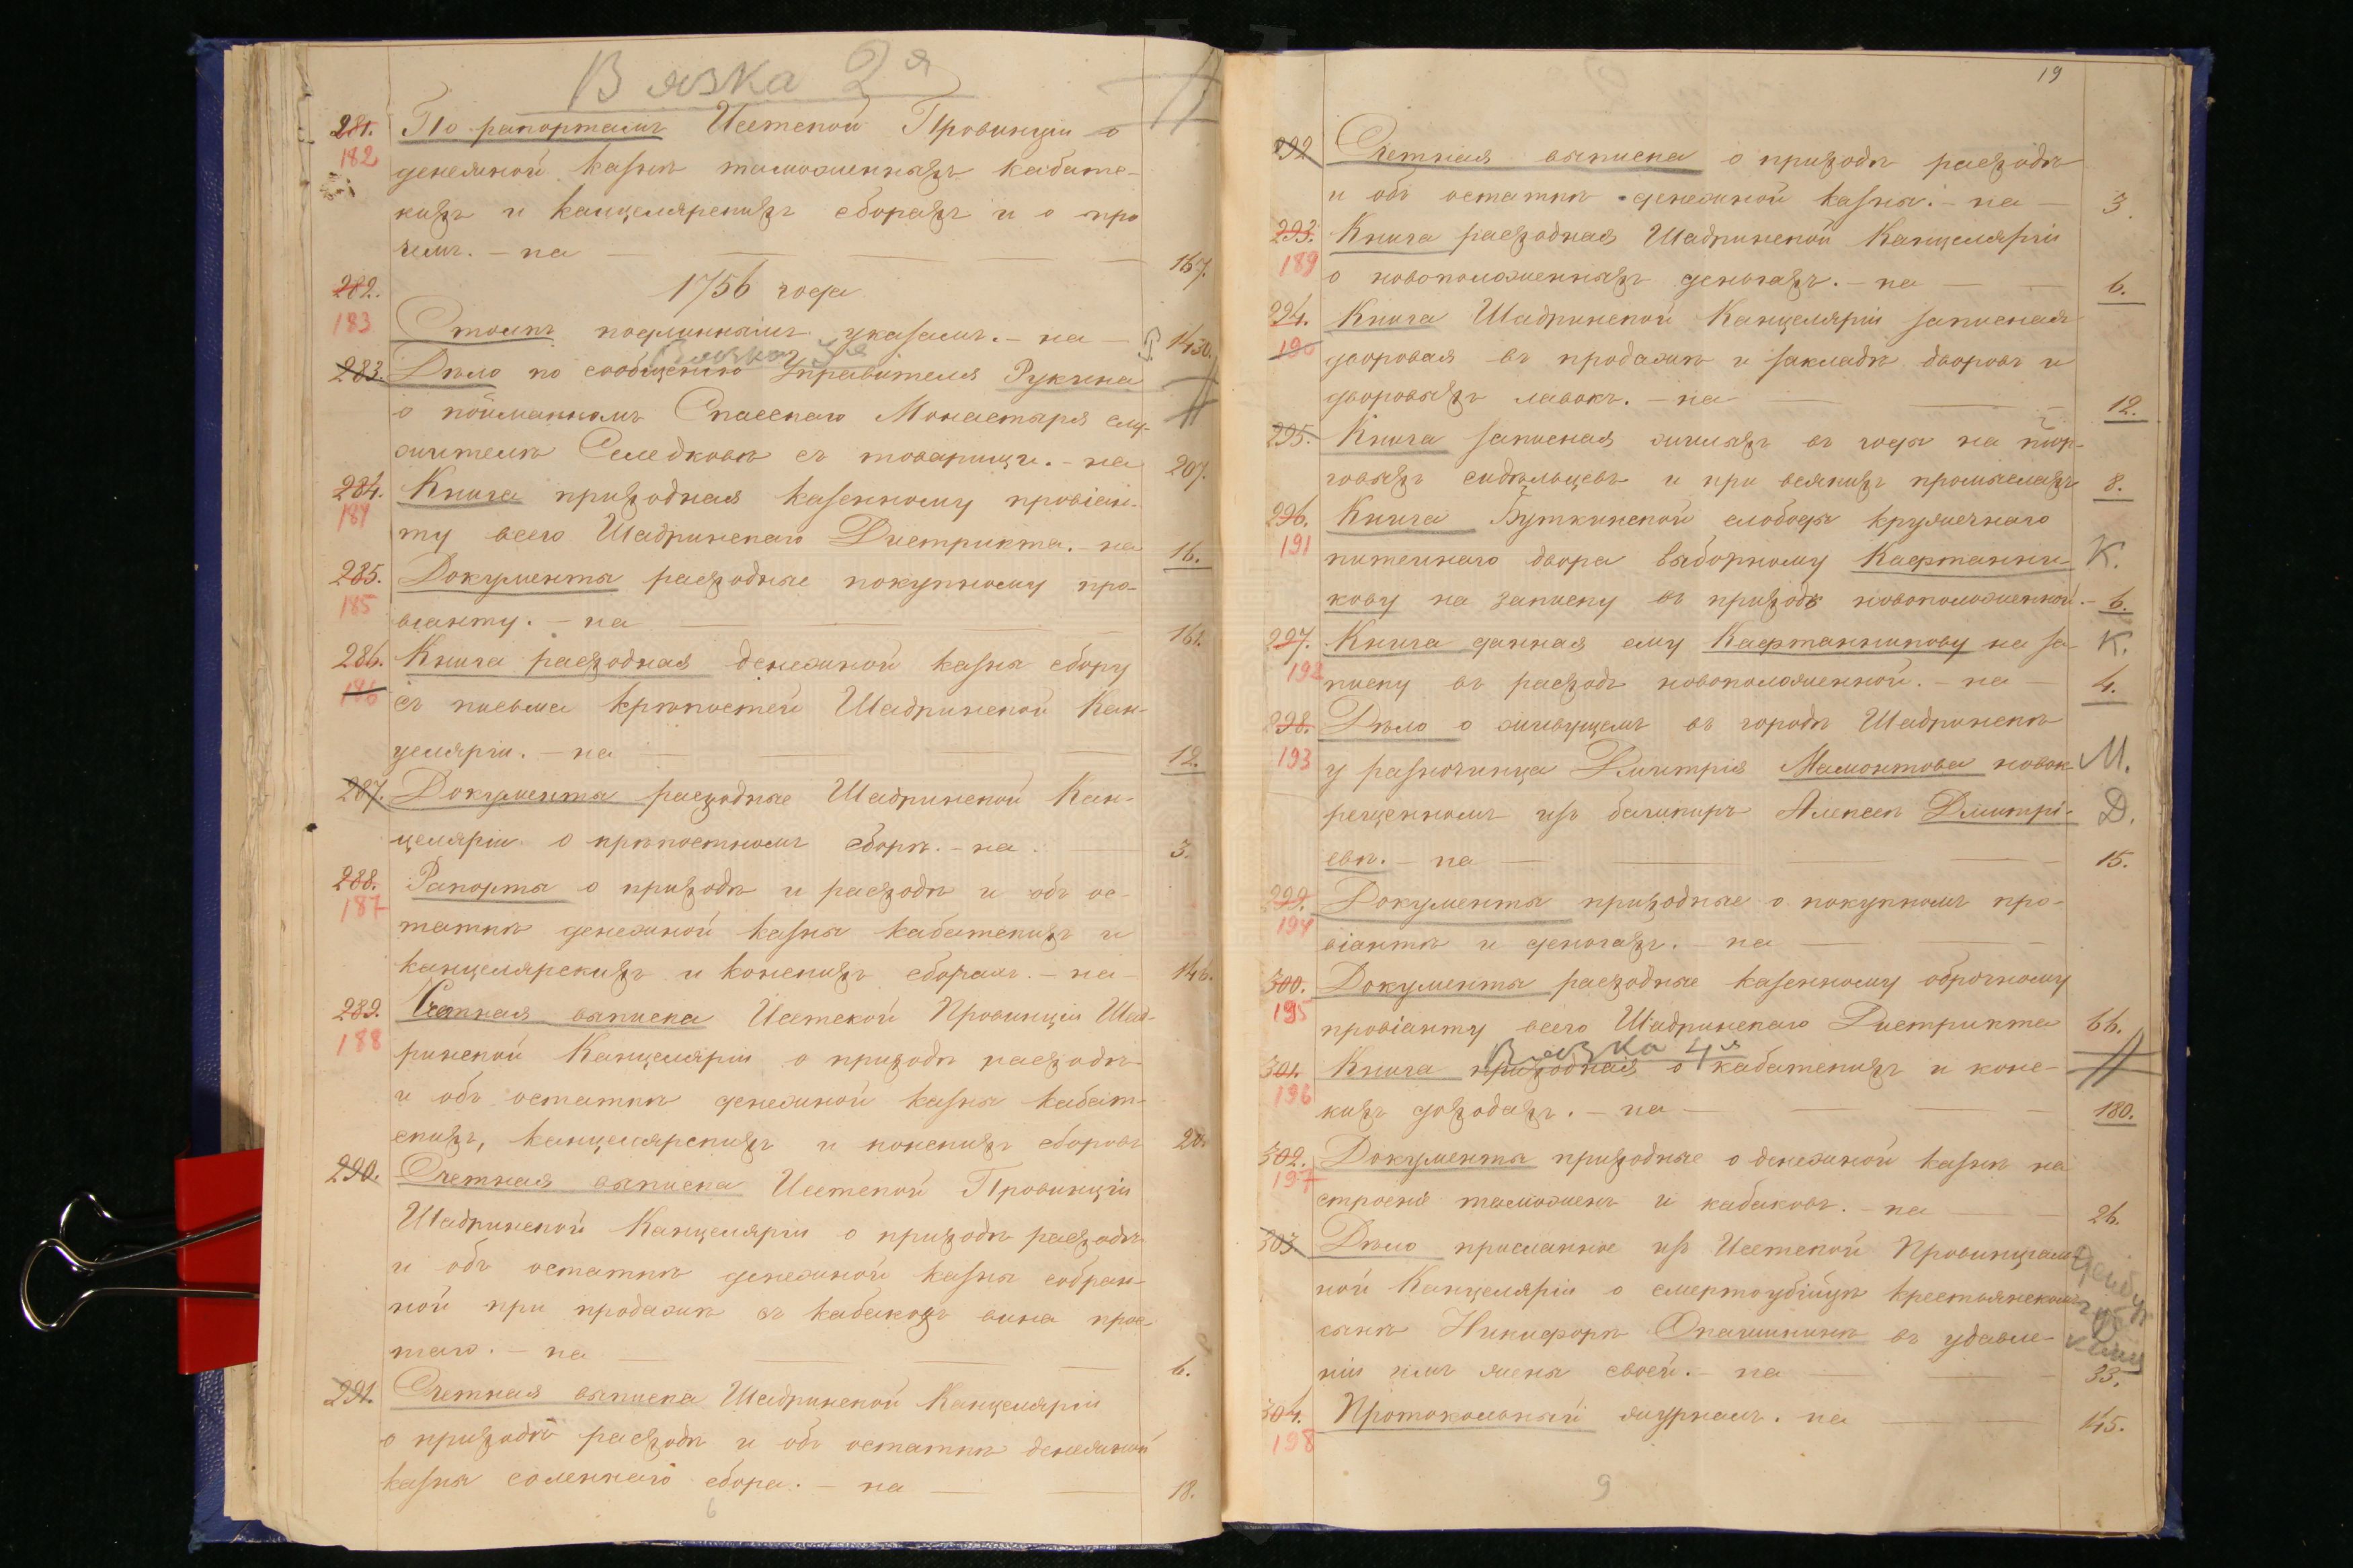 Вязка 2я
281. По рапортамъ Исетской Провинціи о
182 денежной казнѣ таможенныхъ кабатс-
кихъ и канцелярскихъ сборахъ и о про
чемъ. – на — 167.
282. 1756 года
183 Столпъ подлиннымъ указамъ. – на — 1430.
Вязка 3я
283. Дѣло по сообщенію Управителя Рукина
о пойманномъ Спасскаго Монастыря слу-
жителѣ Селедковѣ съ товарищи. – на 207.
284. Книга приходная казенному провіан-
184 ту всего Шадринскаго Дистрикта. – на 16.
285. Документы расходные покупному про-
185 віанту. – на 161.
286. Книга расходная денежной казны сбору
186 съ письма крѣпостей Шадринской Кан-
целяріи. – на 12.
287. Документы расходные Шадринской Кан-
целяріи о крѣпостномъ сборѣ. – на. 3.
288. Рапорты о приходѣ и расходѣ и объ ос-
187 таткѣ денежной казны кабатскихъ и
канцелярскихъ и конскихъ сборахъ. – на – 146.
289. Счетная выписка Исетской Провинціи Шад-
188 ринской Канцеляріи о приходѣ расходѣ
и объ остаткѣ денежной казны кабат-
скихъ, канцелярскихъ и конскихъ сборовъ 20.
290. Счетная выписка Исетской Провинціи
Шадринской Канцеляріи о приходѣ расходѣ
и объ остаткѣ денежной казны собран-
ной при продажѣ съ кабаковъ вина прос-
таго. – на — 6.
291. Счетная выписка Шадринской Канцеляріи
о приходѣ расходѣ и объ остаткѣ денежной
казны соленнаго сбора. – на — 18.
6
19
292 Счетная выписка о приходѣ расходѣ
и объ остаткѣ денежной казны. – на — 3.
293. Книга расходная Шадринской Канцеляріи
189 о новоположенныхъ деньгахъ. – на — 6.
294. Книга Шадринской Канцеляріи записная
190 дворовая въ продажѣ и закладѣ дворовъ и
дворовыхъ лавокъ. – на 12.
295. Книга записная жилыхъ въ года на тор-
говыхъ сидѣльцевъ и при всякихъ промыслахъ 8.
296. Книга Буткинской слободы кружечнаго
191 питейнаго двора выборному Кафтанни- К.
кову на записку въ приходъ новоположенной. – 6.
297. Книга данная ему Кафтанникову на за- К.
192 писку въ расходъ новоположенной. – на — 4.
298. Дѣло о живущемъ въ городѣ Шадринскѣ
193 у разночинца Дмитрія Мамонтова новок- М.
рещенномъ изъ башкиръ Алексеѣ Дмитрі- Д.
евѣ. – на — 15.
299. Документы приходные о покупномъ про-
194 віантѣ и деньгахъ. – на —
300. Документы расходные казенному оброчному
195 провіанту всего Шадринскаго Дистрикта 66.
Вязка 4я
301. Книга приходная о кабатскихъ и конс-
196 кихъ доходахъ. – на — 180.
302. Документы приходные о денежной казнѣ на
197 строеніе таможенъ и кабаковъ. – на — 26.
303. Дѣло присланное изъ Исетской Провинціаль-
ной Канцеляріи о смертоубійцѣ крестьянскомъ
сынѣ Никифорѣ Опашникѣ въ удавле-
ніи имъ жены своей. – на — 33.
304. Протокольный журналъ. на — 145.
198
9